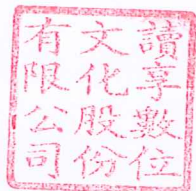 讀享數位
文化股份
有限公司